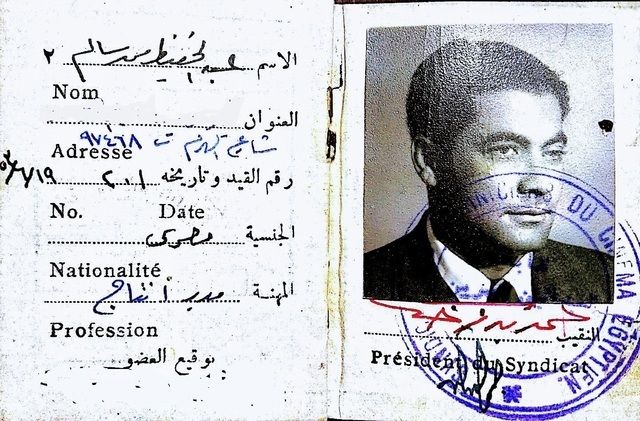 الاسم عبد الحفيظ محمد سالم
Nom
العنوان
شارع الهرم ت ٩٧٤٦٨
Adresse
رقم القيد وتاريخه
No. Date
الجنسية مصرى
Nationalité
المهنة مدير انتاج
Profession
توقيع العضو
النقيب
Président du Syndicat
DU CINEMA EGYPTIEN